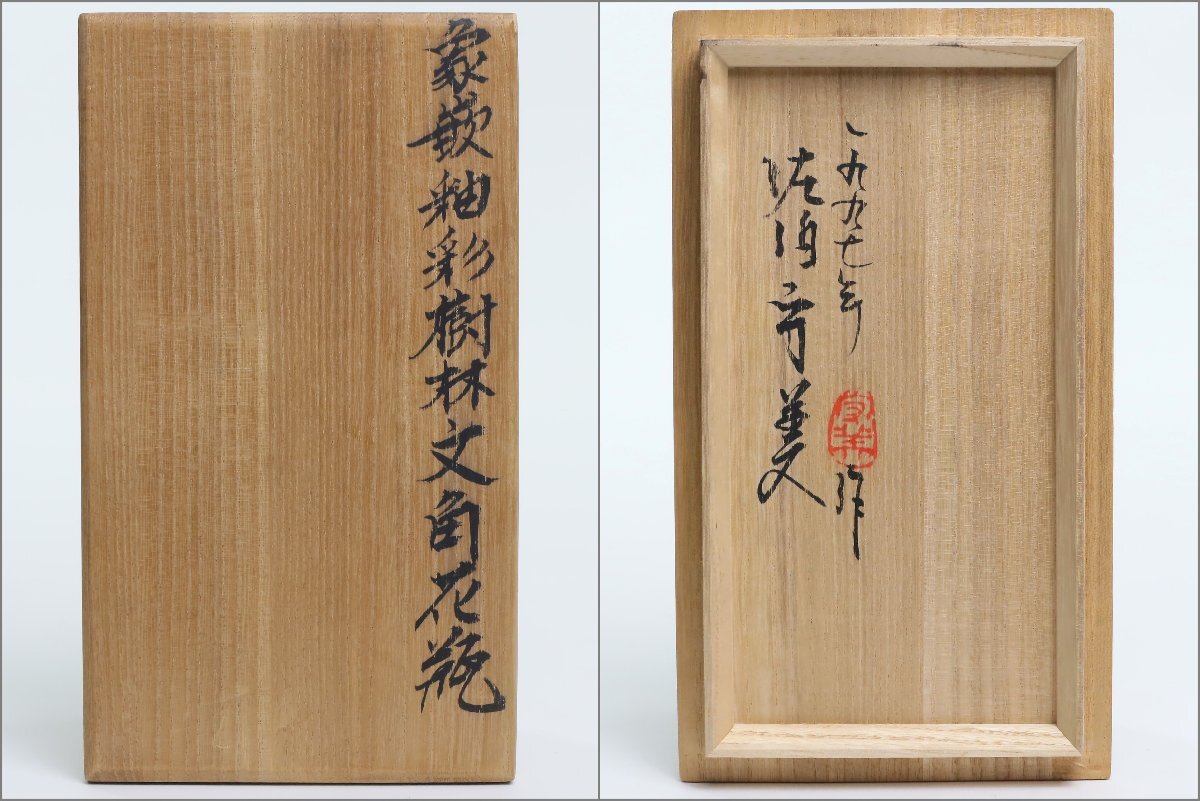 象嵌釉彩樹林文角花瓶
一九九七年
佐伯守美
守美
作